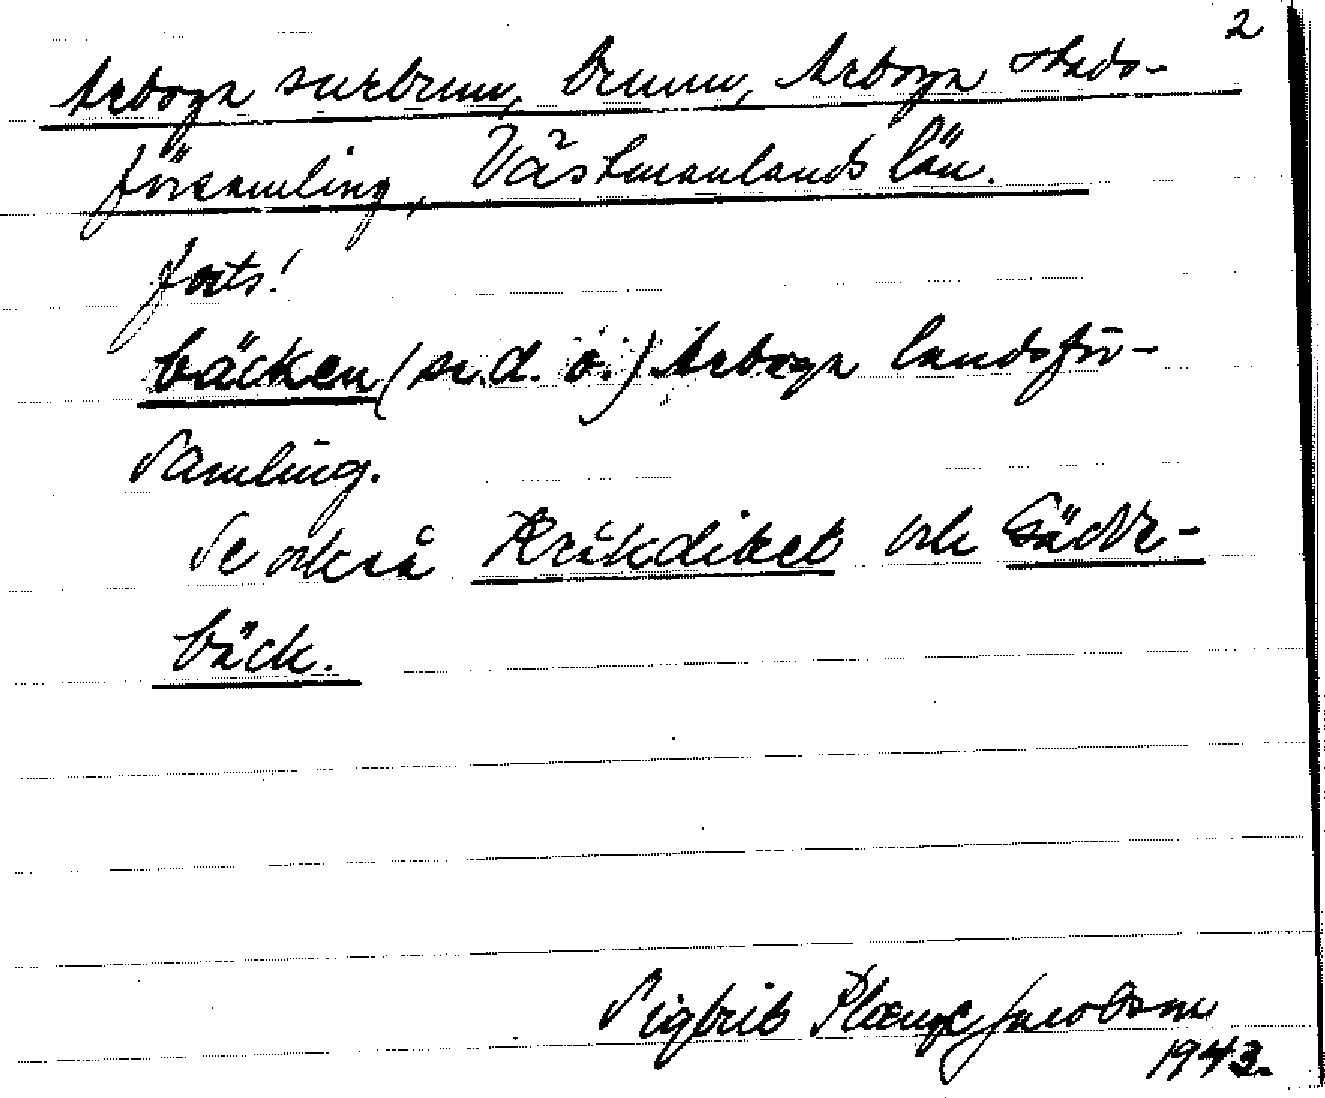 2
Arboga surbrunn, brunn, Arboga stads-
församling, Västmanlands län.
forts!
bäcken (se. d. o.) Arboga landsför-
samling.
Se också Kråkdiket och Gädde-
bäck.
Sigbrit Plænge Jacobson
1943.